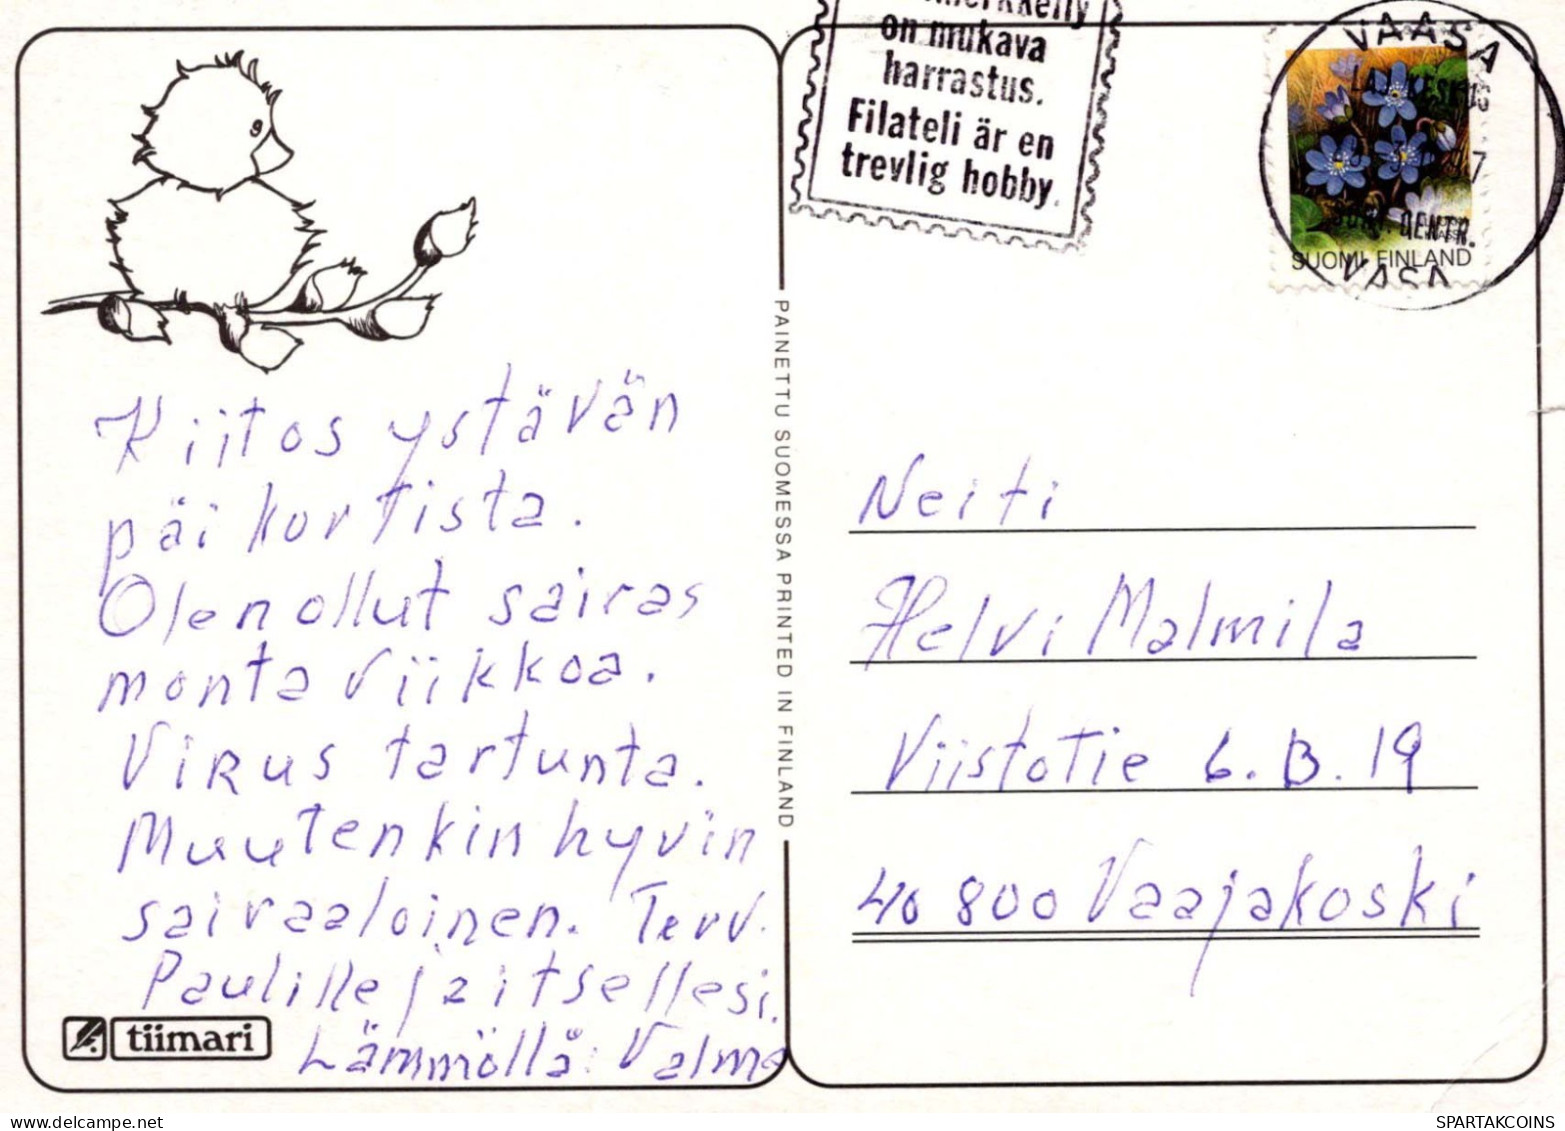 on mukava
harrastus.
Filateli är en
trevlig hobby.
VAASA
SUOMI FINLAND
VASA
Kiitos ystävän
päi kortista.
Olen ollut sairas
monta viikkoa.
Virus tartunta.
Muutenkin hyvin
sairaaloinen. Terv.
Paulille ja itsellesi.
Lämmöllä: Valma
tiimari
PAINETTU SUOMESSA PRINTED IN FINLAND
Neiti
Helvi Malmila
Viistotie 6.B.19
40 800 Vaajakoski
https://www.delcampe.net
SPARTAKCOINS